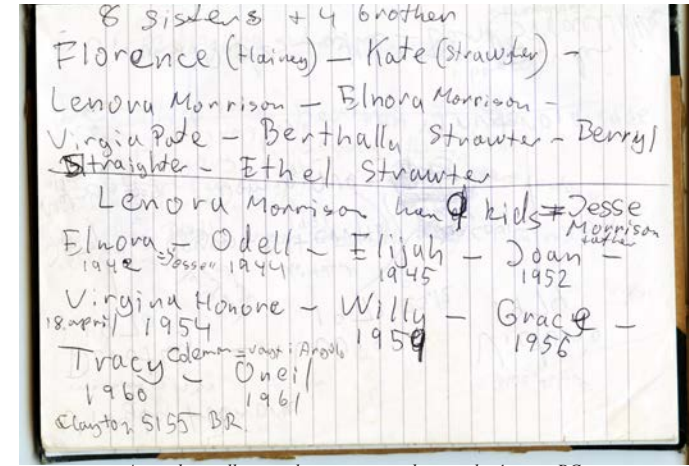 8 sisters + 4 brother
Florence (Hainey) – Kate (Strawyter) –
Lenora Morrison – Elnora Morrison –
Virgia Pate – Berthally Strawter – Berryl
Straighter – Ethel Strawter
Lenora Morrison han 9 kids = Jesse
Morrison
father
Elnora – Odell – Elijah – Joan –
1942 1944 1945 1952
Virgina Honore – Willy – Grace –
18. april 1954 1959 1956
Tracy Coleman = vagt i Angola – Oneil
1960 1961
Clayton 5155 BR.